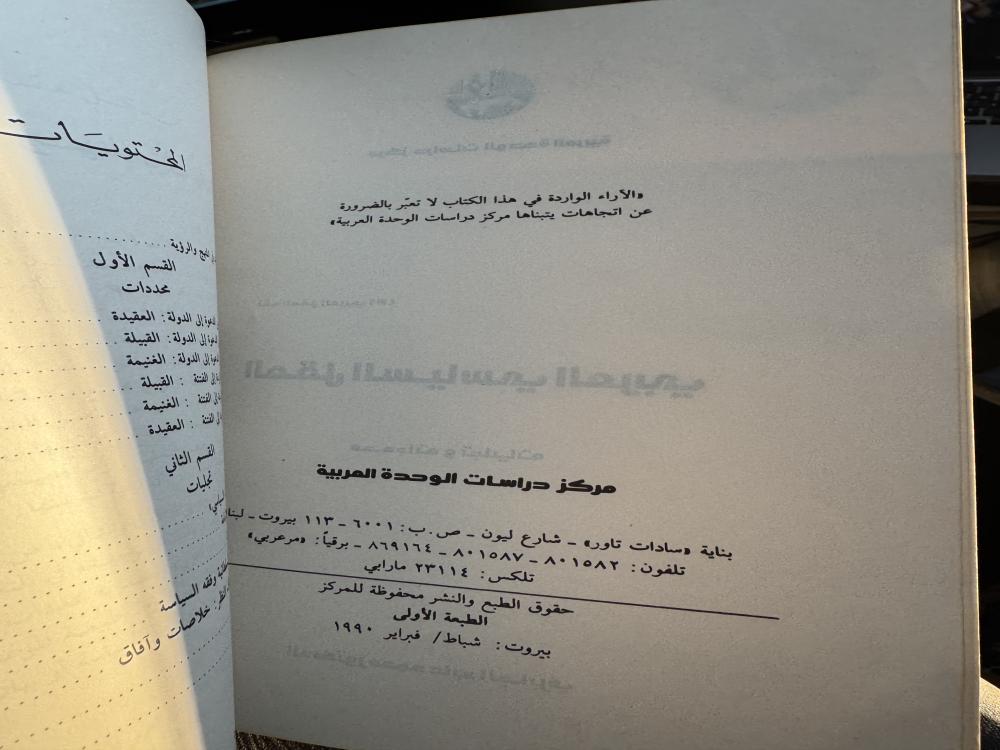 «الآراء الواردة في هذا الكتاب لا تعبّر بالضرورة
عن اتجاهات يتبناها مركز دراسات الوحدة العربية»
مركز دراسات الوحدة العربية
بناية «سادات تاور» ـ شارع ليون ـ ص.ب: ٦٠٠١ ـ ١١٣ بيروت ـ لبنان
تلفون: ٨٠١٥٨٢ ـ ٨٠١٥٨٧ ـ ٨٦٩١٦٤ ـ برقياً: «مرعربي»
تلكس: ٢٣١١٤ مارابي
حقوق الطبع والنشر محفوظة للمركز
الطبعة الأولى
بيروت: شباط/ فبراير ١٩٩٠
المحتويات
والرؤية
القسم الأول
محددات
إلى الدولة: العقيدة
إلى الدولة: القبيلة
إلى الدولة: الغنيمة
إلى الفتنة : القبيلة
إلى الفتنة : الغنيمة
إلى الفتنة : العقيدة
القسم الثاني
تجليات
وفقه السياسة
خلاصات وآفاق